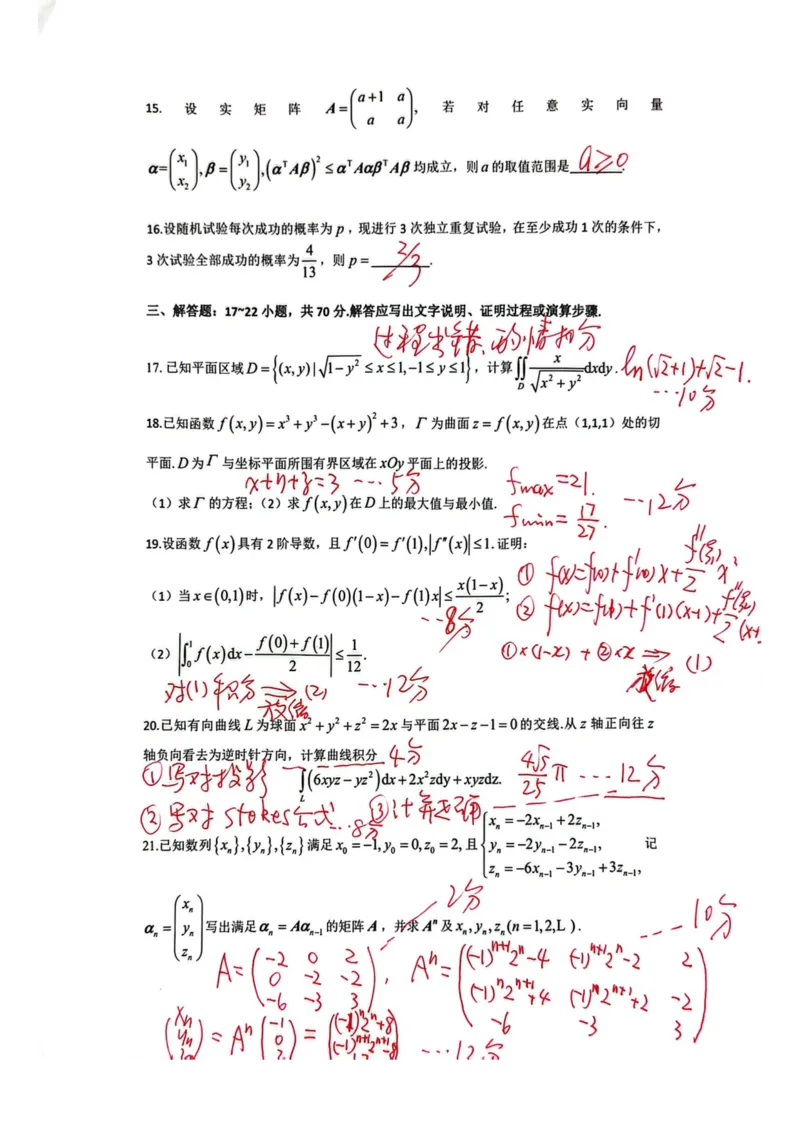 15. 设 实 矩 阵 A=(a+1 a; a a), 若 对 任 意 实 向 量
α=(x₁; x₂), β=(y₁; y₂), (αᵀAβ)² ≤ αᵀAαβᵀAβ 均成立，则 a 的取值范围是 a≥0 .
16.设随机试验每次成功的概率为 p，现进行 3 次独立重复试验，在至少成功 1 次的条件下，
3 次试验全部成功的概率为 4/13，则 p= 2/3 .
三、解答题：17~22 小题，共 70 分.解答应写出文字说明、证明过程或演算步骤.
过程出错，酌情扣分
17. 已知平面区域 D={(x,y)| √(1-y²) ≤x≤1,-1≤y≤1}，计算 ∬_D x/√(x²+y²) dxdy. ln(√2+1)+√2-1.
…10分
18.已知函数 f(x,y)=x³+y³-(x+y)²+3，Γ 为曲面 z=f(x,y) 在点 (1,1,1) 处的切
平面.D 为 Γ 与坐标平面所围有界区域在 xOy 平面上的投影.
x+y+z=3 …5分
fmax=21.
（1）求 Γ 的方程；（2）求 f(x,y) 在 D 上的最大值与最小值.
fmin=17/27. …12分
19.设函数 f(x) 具有 2 阶导数，且 f'(0)=f'(1), |f''(x)|≤1. 证明：
① f(x)=f(0)+f'(0)x+f''(ξ₁)/2 x²
（1）当 x∈(0,1) 时，|f(x)-f(0)(1-x)-f(1)x| ≤ x(1-x)/2;
…8分
② f(x)=f(1)+f'(1)(x-1)+f''(ξ₂)/2 (x-
（2）|∫₀¹ f(x)dx - (f(0)+f(1))/2| ≤ 1/12.
①×(1-x) + ②×x ⇒ (1)
放缩
对(1)积分 ⇒ (2) …12分
放缩
20.已知有向曲线 L 为球面 x²+y²+z²=2x 与平面 2x-z-1=0 的交线.从 z 轴正向往 z
轴负向看去为逆时针方向，计算曲线积分 4分
①写对投影 ∫_L (6xyz-yz²)dx+2x²zdy+xyzdz. 4√5/25 π …12分
②写对 stokes公式 …8分 ③计算正确
21.已知数列 {xₙ},{yₙ},{zₙ} 满足 x₀=-1, y₀=0, z₀=2, 且 {xₙ=-2xₙ₋₁+2zₙ₋₁, yₙ=-2yₙ₋₁-2zₙ₋₁, zₙ=-6xₙ₋₁-3yₙ₋₁+3zₙ₋₁, 记
2分
αₙ=(xₙ; yₙ; zₙ) 写出满足 αₙ=Aαₙ₋₁ 的矩阵 A，并求 Aⁿ 及 xₙ,yₙ,zₙ(n=1,2,L ).
…10分
A=(-2 0 2; 0 -2 -2; -6 -3 3), Aⁿ=((-1)ⁿ⁺¹2ⁿ-4 (-1)ⁿ⁺¹2ⁿ-2 2; (-1)ⁿ2ⁿ⁺¹+4 (-1)ⁿ2ⁿ⁺¹+2 -2; -6 -3 3)
(xₙ; yₙ; = Aⁿ(-1; 0; = ((-1)ⁿ2ⁿ+8; (-1)ⁿ⁺¹2ⁿ⁺¹-8
…12分